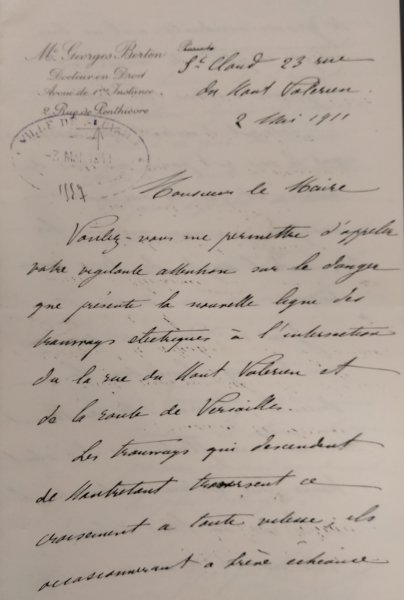 Me Georges Berton
Docteur en Droit
Avoué de 1ère Instance
2 Rue de Penthièvre
St Cloud 23 rue
du Mont Valerien
2 Mai 1911
VILLE
1157
Monsieur le Maire
Voulez-vous me permettre d'appeler
votre vigilante attention sur le danger
que présente la nouvelle ligne des
tramways electriques à l'intersection
du la rue du Mont Valerien et
de la route de Versailles.
Les tramways qui descendent
de Montretout traversent ce
croisement a toute vitesse, ils
occasionneront a brève echéance